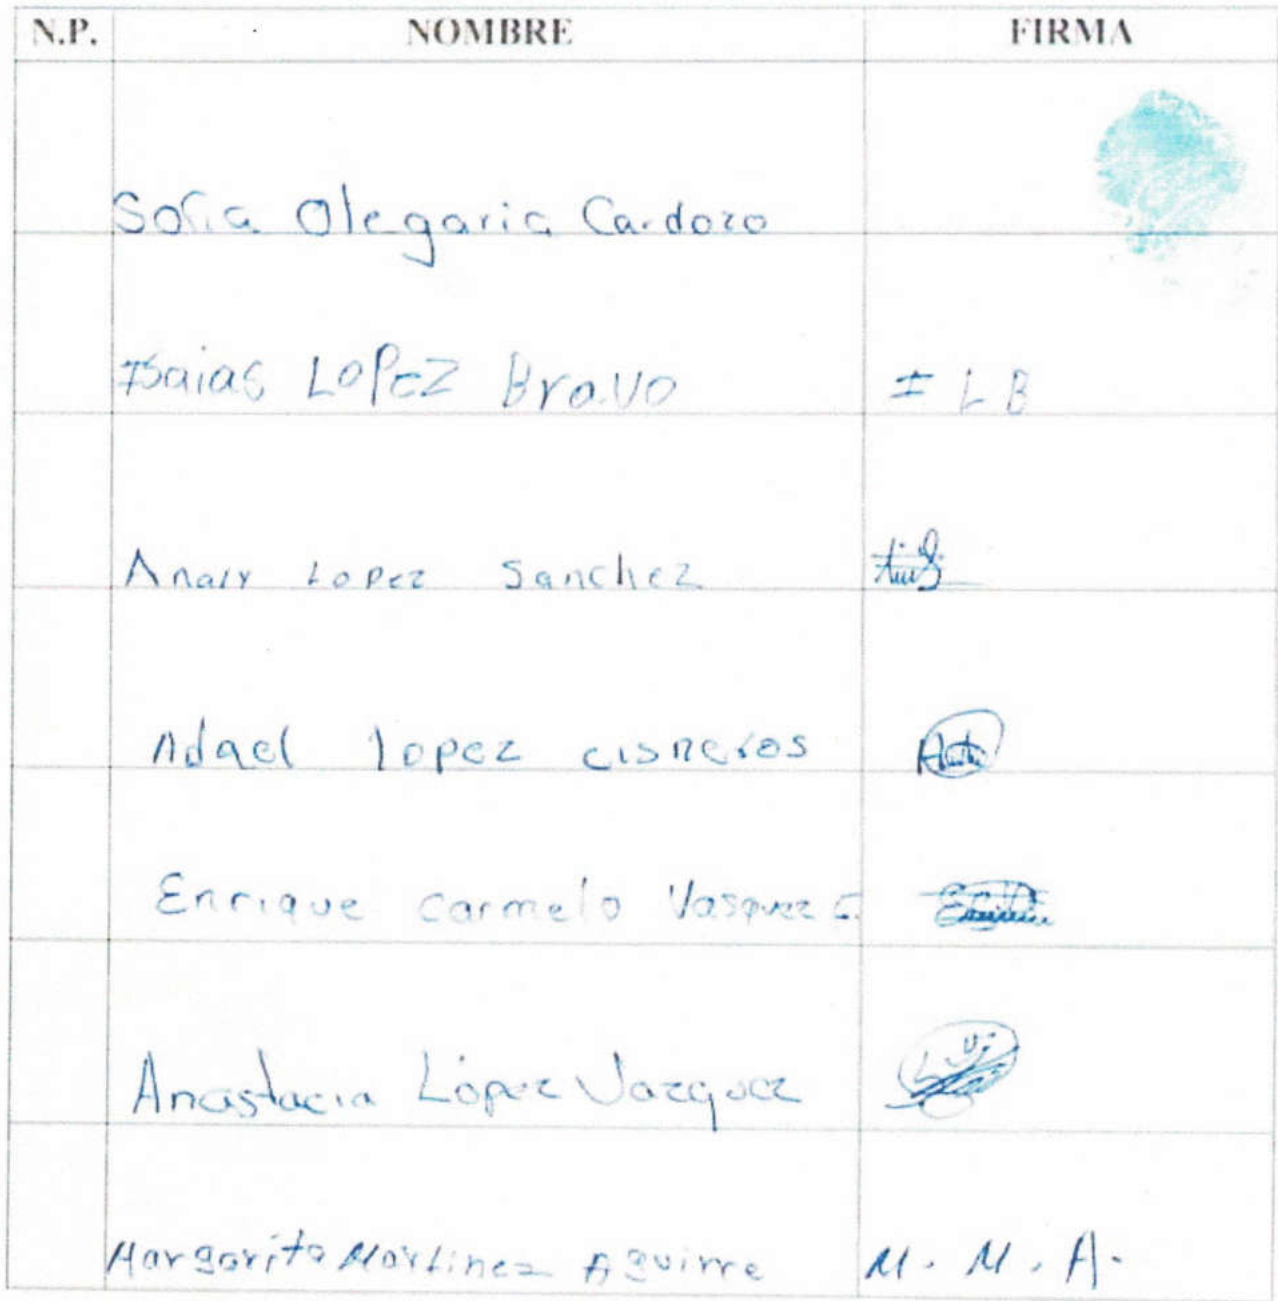 N.P. NOMBRE FIRMA
Sofia Olegaria Cardozo
Isaias LOPEZ Bravo I L B
Anaiy Lopez Sanchez
Adael lopez cisneros
Enrique carmelo Vasquez C.
Anastacia López Vazquez
Margarita Martinez Aguirre M. M. A.